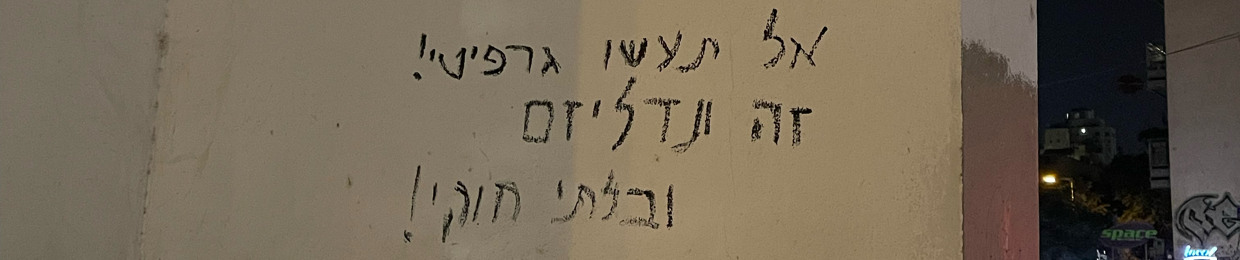 אל תעשו גרפיטי!
זה ונדליזם
ובלתי חוקי!
space